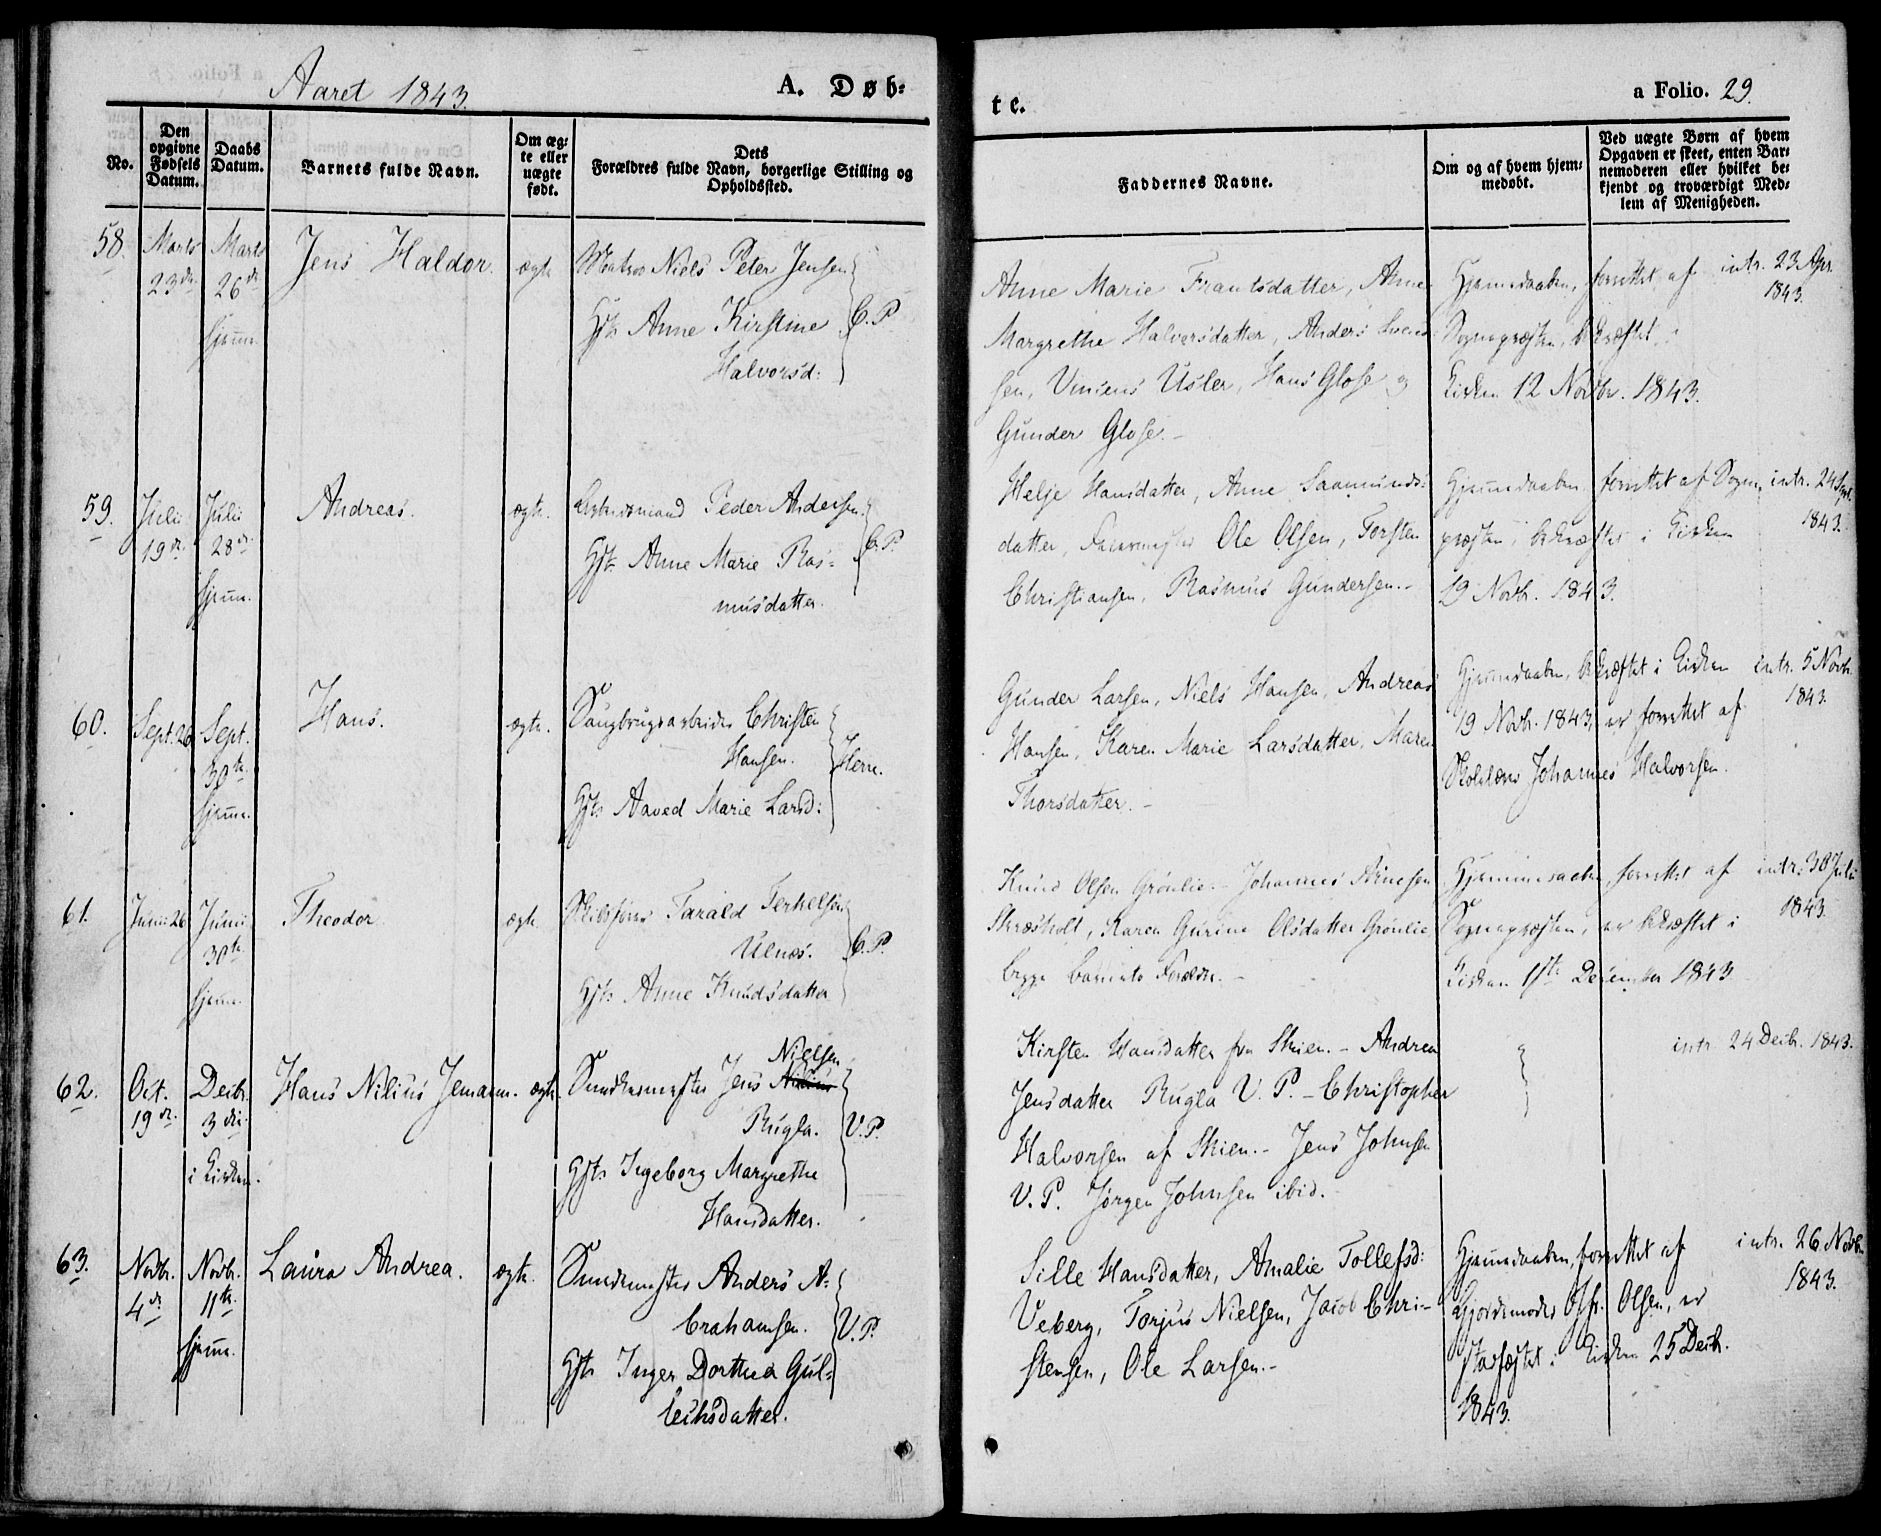 Aaret 1843.
A. Døb-
te.
a Folio. 29.
No.
Den opgivne Fødsels Datum.
Daabs Datum.
Barnets fulde Navn.
Om æg-
te eller
uægte
født.
Dets
Forældres fulde Navn, borgerlige Stilling og
Opholdssted.
Faddernes Navne.
Om og af hvem hjem-
medøbt.
Ved uægte Børn af hvem
Opgaven er skeet, enten Bar-
nemoderen eller hvilket be-
kjendt og troværdigt Med-
lem af Menigheden.
58.
Marts
23de
Marts
26de
hjemme
Jens Haldor.
ægte
Matros Niels Peter Jensen
Hst. Anne Kirstine
Halvorsd:
C. P.
Anne Marie Frantsdatter, Anne
Margrethe Halvorsdatter, Anders Svend-
sen, Vincens Usler, Hans Glose og
Gunder Glose.-
Hjemmedaaben, forrettet af
Sognepræsten, bekræftet i
Kirken 12 Novbr. 1843.
intr. 23 Apr.
1843.
59.
Julii
19de
Julii
28de
hjemme.
Andreas.
ægte.
Peder Andersen.
Hst. Anne Marie Ras-
musdatter.
C. P.
Helje Hansdatter, Anne Saamunds-
datter, Ole Olsen, Torsten
Christiansen, Rasmus Gundersen.-
Hjemmedaaben forrettet af Sogne-
præsten, bekræftet i Kirken
19 Novbr. 1843.
intr. 24 Sept.
1843.
60.
Sept. 26
Sept.
30te
hjemme.
Hans.
ægte.
Saugbrugsarbeider Christen
Hansen.
Hst. Aaved Marie Larsd:
Herre.
Gunder Larsen, Niels Hansen, Andreas
Hansen, Karen Marie Larsdatter, Maren
Thorsdatter.-
Hjemmedaaben, bekræftet i Kirken
19 Novbr. 1843, er forrettet af
Skolelærer Johannes Halvorsen.
intr. 5 Novbr.
1843.
61.
Junii 26
Junii
30te
hjemme
Theodor
ægte.
Tarald Terkelsen
Ulnæs.
Hst. Anne Knudsdatter
C. P.
Knud Olsen Grønlie.- Johannes Arnesen
Skræsholt, Karen Gurine Olsdatter Grønlie
begge Barnets Forældre.-
Hjemmedaaben, forrettet af
Sognepræsten, er bekræftet i
Kirken 17te December 1843.
intr. 30 Juli
1843.
62.
Oct.
19de
Decbr.
3die
i Kirken.
Hans Nilius Jemann.
ægte.
Nielsen
Smedemester Jens Nilius
Rugla.
Hst. Ingeborg Margrethe
Hansdatter.
V. P.
Kirsten Hansdatter fra Skien.- Andrea
Jensdatter Rugla V. P. - Christopher
Halvorsen af Skien.- Jens Johnsen
V. P. Jørgen Johnsen ibid.
intr. 24 Decbr. 1843.
63.
Novbr.
4de
Novbr.
11te
hjemme.
Laura Andrea.
ægte.
Smedemester Anders A-
brahamsen.
Hst. Inger Dorthea Gul-
leichsdatter.
V. P.
Sille Hansdatter, Amalie Tollefsd:
Veberg, Torjus Nielsen, Jacob Chri-
stensen, Ole Larsen.-
Hjemmedaaben, forrettet af
Gjordemoder Olsen, er
stadfæstet i Kirken 25 Decbr.
1843.
intr. 26 Novbr.
1843.